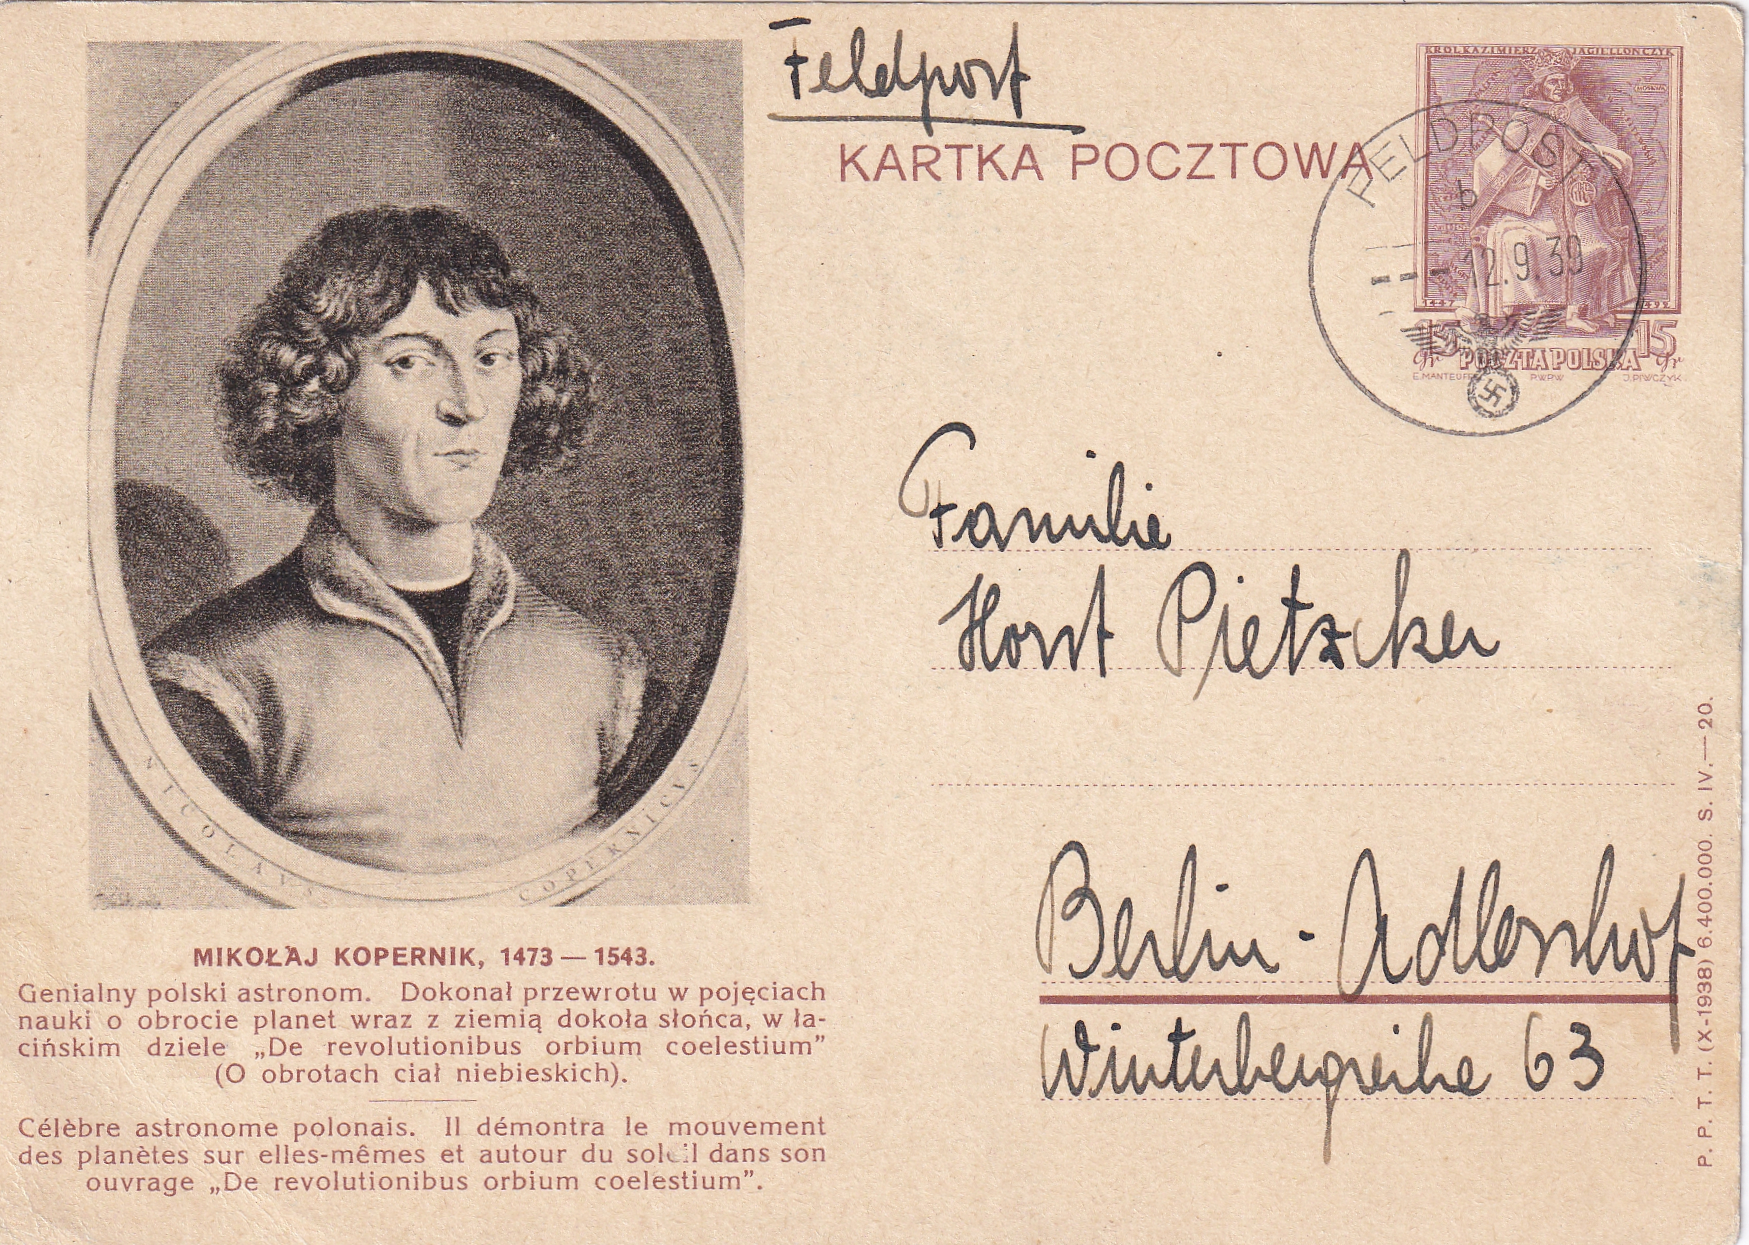 Feldpost
KARTKA POCZTOWA
KRÓL KAZIMIERZ JAGIELLOŃCZYK
FELDPOST
b
--- 12.9.39
1447 1492
15 15
gr POCZTA POLSKA gr
E.MANTEUFFEL P.W.P.W. J.PIWCZYK
Familie
Horst Pietzcker
Berlin-Adlershof
Winterbergreihe 63
NICOLAVS COPERNICVS
MIKOŁAJ KOPERNIK, 1473 — 1543.
Genialny polski astronom. Dokonał przewrotu w pojęciach
nauki o obrocie planet wraz z ziemią dokoła słońca, w ła-
cińskim dziele „De revolutionibus orbium coelestium”
(O obrotach ciał niebieskich).
Célèbre astronome polonais. Il démontra le mouvement
des planètes sur elles-mêmes et autour du soleil dans son
ouvrage „De revolutionibus orbium coelestium”.
P. P. T. T. (X-1938) 6.400.000. S. IV.— 20.